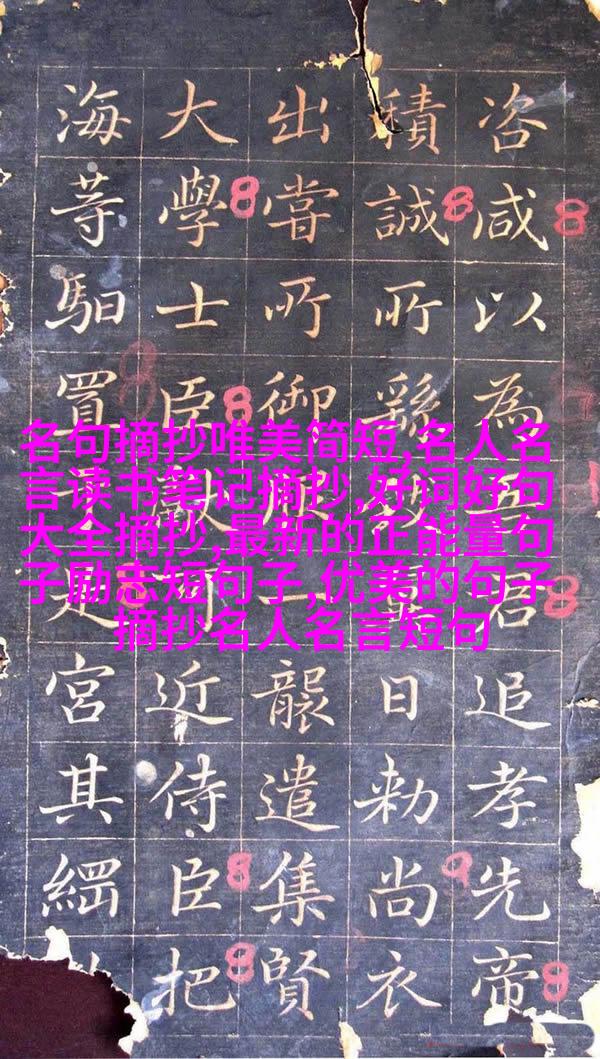 咨咸以為君追孝先帝
積誠所繇日勅尚衣
出嘗所御服一襲遣集賢
大學士臣近侍臣把
海等馹置之宮其
名句摘抄唯美简短,名人名
言读书笔记摘抄,好词好句
大全摘抄,最新的正能量句
子励志短句子,优美的句子
摘抄名人名言短句
8
8
8
8
8
8
8
9
8
9